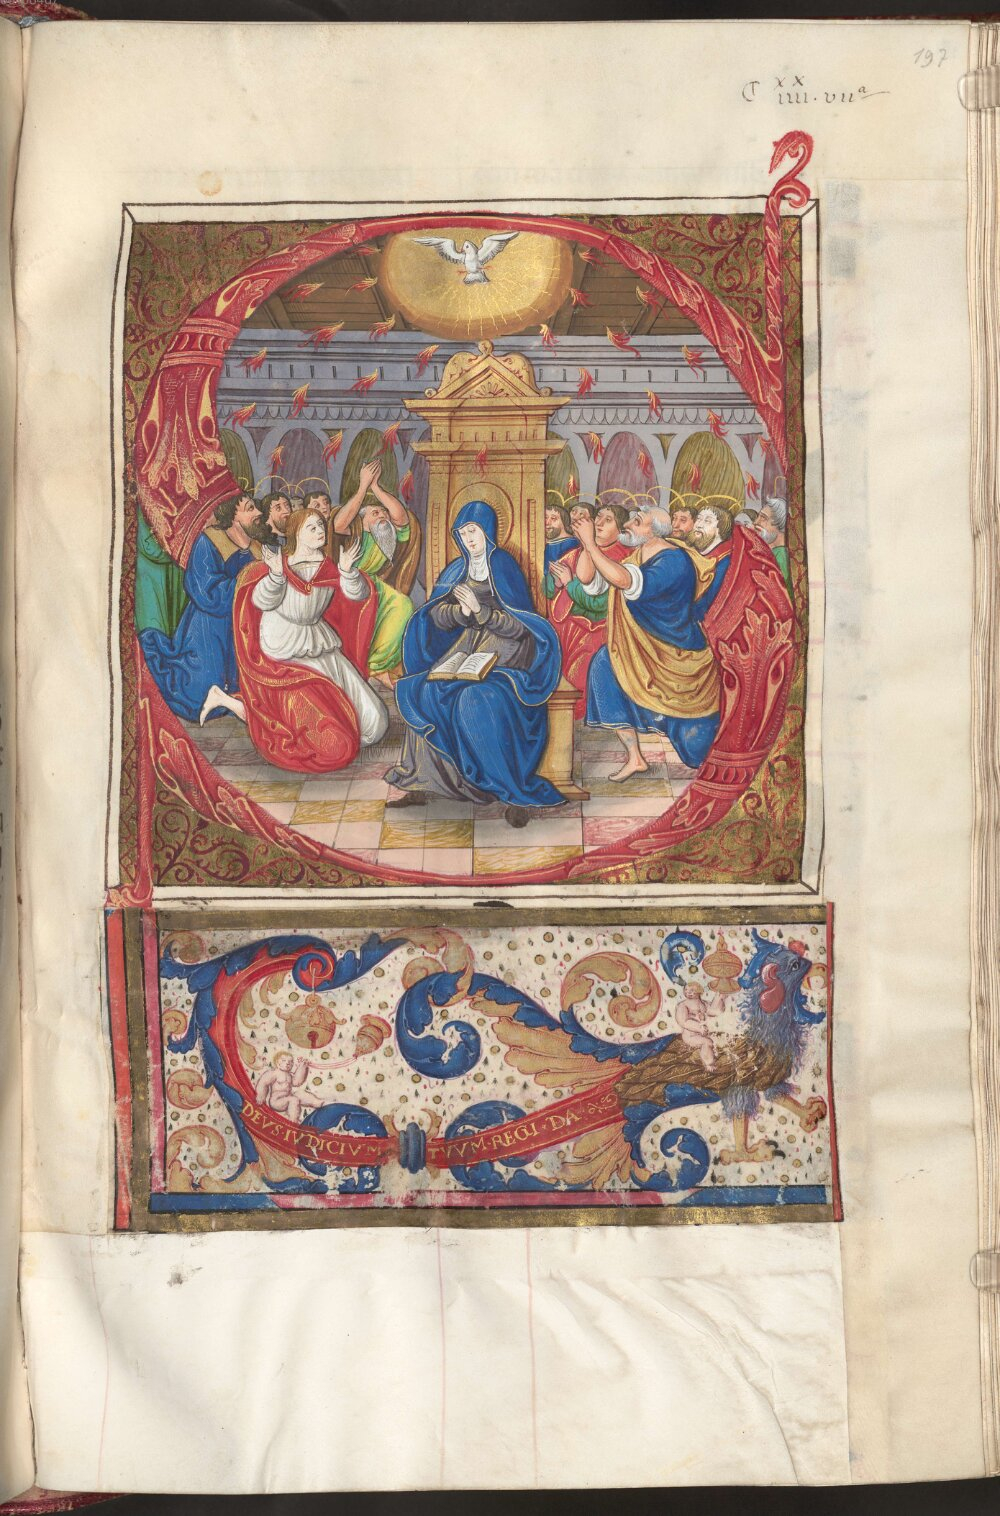 197
C XX
IIII·VIIa
DEVS·IVDICIVM TVVM·REGI·DA